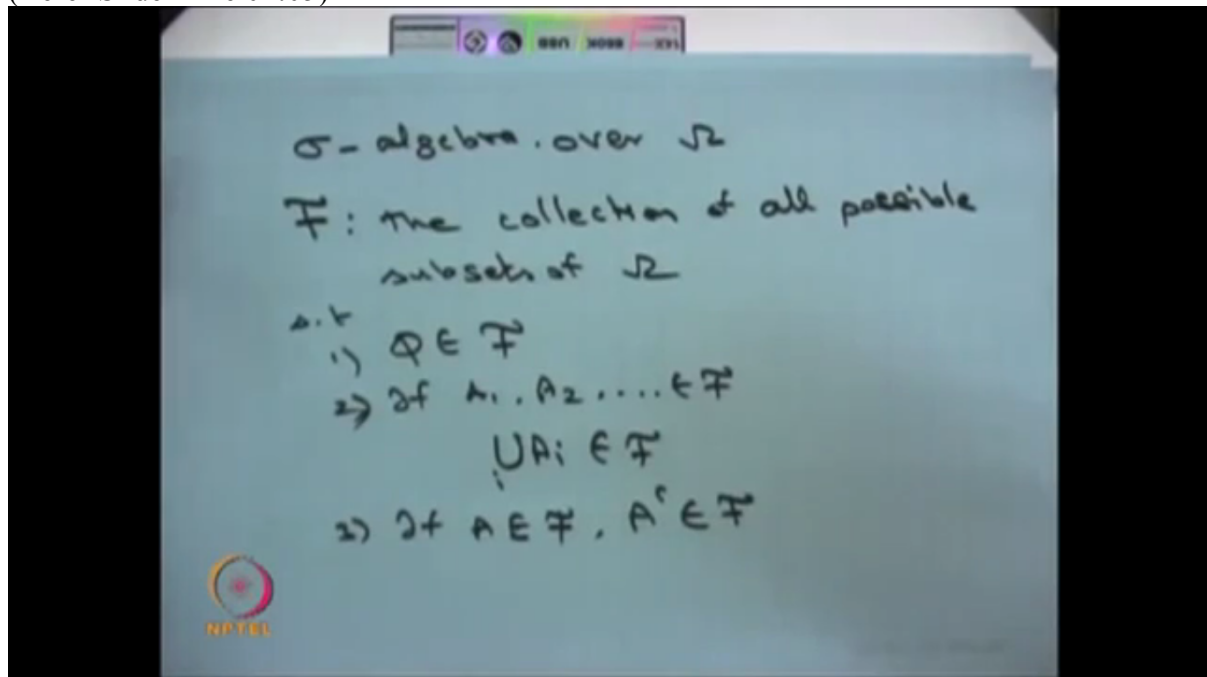 σ- algebra. over Ω
F: The collection of all possible
subsets of Ω
s.t
1) Φ ∈ F
2) If A1, A2, .... ∈ F
∪Ai ∈ F
i
3) If A ∈ F, Aᶜ ∈ F
NPTEL